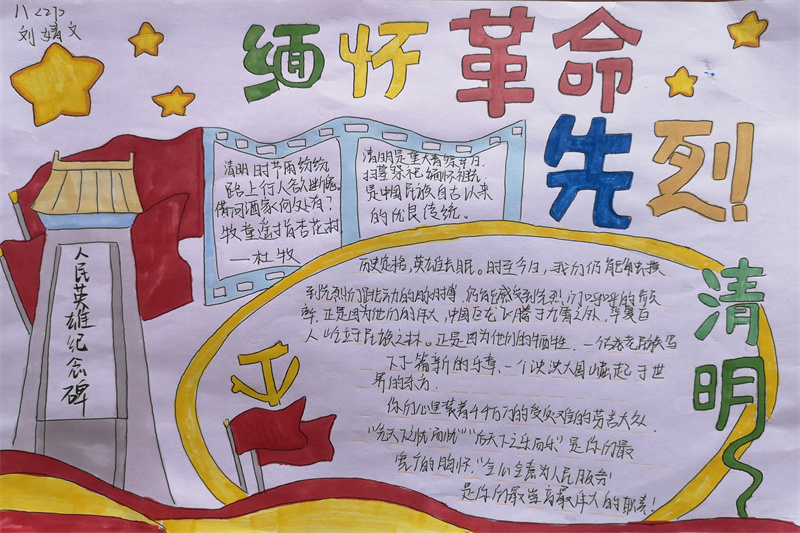 八<2>
刘婧文
缅怀革命
先烈!
清明
清明时节雨纷纷
路上行人欲断魂。
借问酒家何处有?
牧童遥指杏花村
—杜牧
清明是重大春祭节日
扫墓祭祀 缅怀祖先
是中国民族自古以来
的优良传统。
人民英雄纪念碑
历史定格,英雄长眠。时至今日,我们仍能触摸
到先烈们 的脉搏,仍能感受到先烈们呼呼的
正是因为他们的伟大,中国巨龙飞腾于九霄之外,华夏巨
人屹立于民族之林。正是因为他们的牺牲,一
下了 新的乐章、一个泱泱大国崛起于世
界的东方
你们心里装着千千万万的受苦受难的劳苦大众.
"先天下之忧而忧""后天下之乐而乐"是你们最
宽广的胸怀."全心全意为人民服务"
是你们最崇高最伟大的职责!